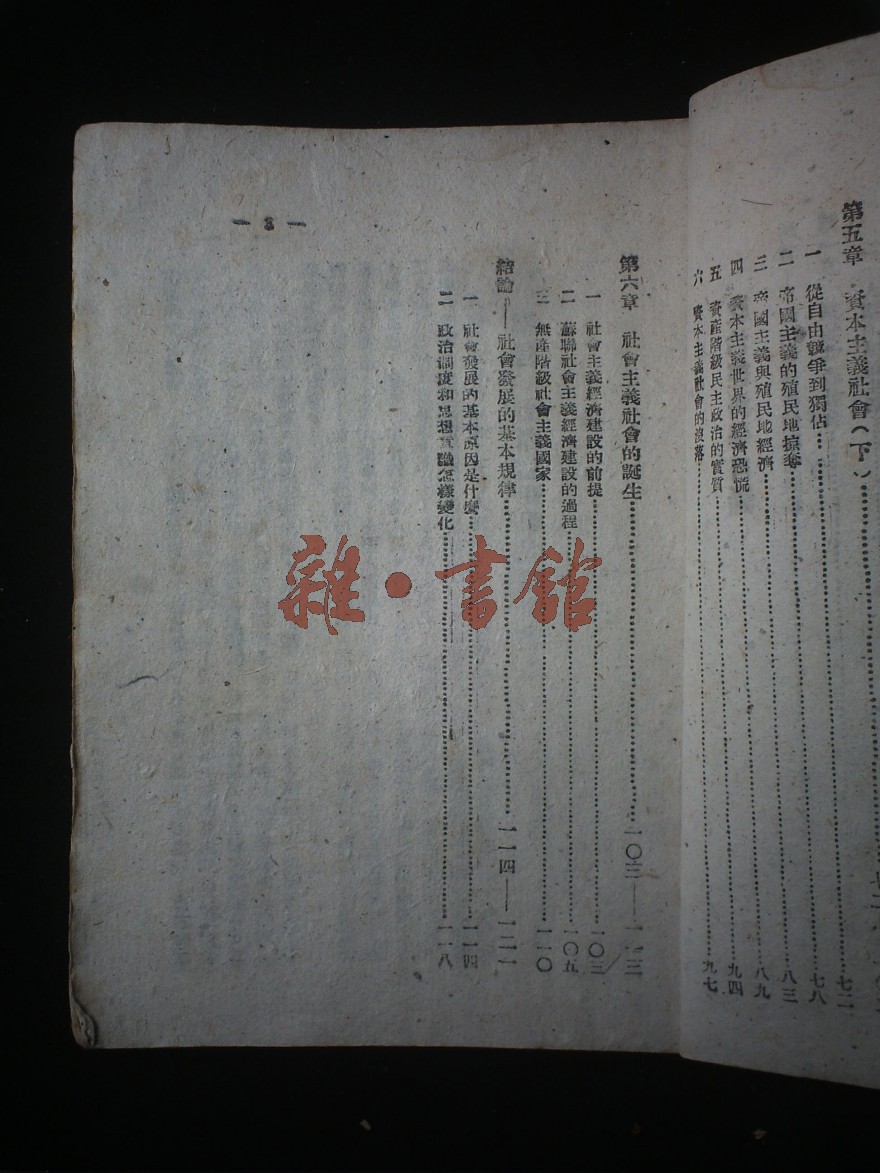 第五章 資本主義社會（下）
一 從自由競爭到獨佔 七二
二 帝國主義的殖民地掠奪 七八
三 帝國主義與殖民地經濟 八三
四 資本主義世界的經濟恐慌 八九
五 資產階級民主政治的實質 九四
六 資本主義社會的沒落 九七
第六章 社會主義社會的誕生 一〇三——一一三
一 社會主義經濟建設的前提 一〇三
二 蘇聯社會主義經濟建設的過程 一〇五
三 無產階級社會主義國家 一一〇
結論——社會發展的基本規律 一一四——一二一
一 社會發展的基本原因是什麼 一一四
二 政治制度和思想意識怎樣變化 一一八
— 3 —
雜·書館